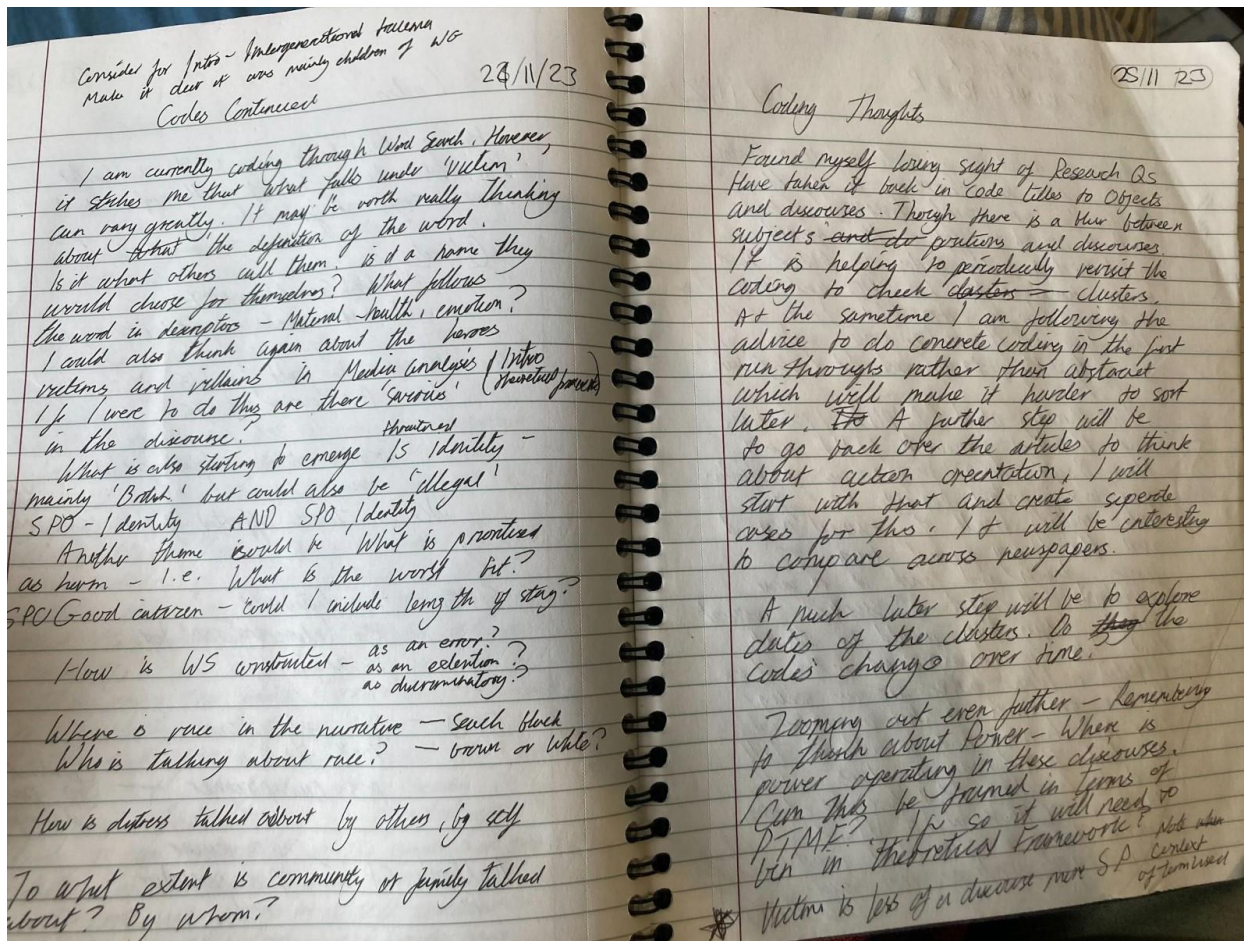 Consider for Intro - Intergenerational trauma
Make it clear it was mainly children of WG
24/11/23
Codes Continued
I am currently coding through Word Search. However,
it strikes me that what falls under 'victim'
can vary greatly. It may be worth really thinking
about what the definition of the word.
Is it what others call them, is it a name they
would choose for themselves? What follows
the word in descriptors - Material - health, emotion?
I could also think again about the heroes
victims and villains in Media analysis (Intro
theoretical framework)
If I were to do this are there 'saviours'
in the discourse?
threatened
What is also starting to emerge is Identity -
mainly 'British' but could also be 'illegal'
SPO - Identity AND SPO Identity
Another theme would be What is prioritised
as harm - i.e. What is the worst bit?
SPO Good citizen - could I include length of stay?
How is WS constructed - as an error?
as an extention?
as discriminatory?
Where is race in the narrative - search black
Who is talking about race? - brown or white?
How is distress talked about by others, by self
To what extent is community or family talked
about? By whom?
25/11 23
Coding Thoughts
Found myself losing sight of Research Qs
Have taken it back in code titles to Objects
and discourses. Though there is a blur between
subjects and do positions and discourses.
It is helping to periodically revisit the
coding to check clusters - clusters.
At the sametime I am following the
advice to do concrete coding in the first
run throughs rather than abstract
which will make it harder to sort
later. A further step will be
to go back over the articles to think
about action orientation. I will
start with that and create seperate
cases for this. It will be interesting
to compare across newspapers.
A much later step will be to explore
dates of the clusters. Do they the
codes change over time?
Zooming out even further - Remembering
to think about Power - Where is
power operating in these discourses.
Can this be framed in terms of
PTMF? If so it will need to
be in theoretical Framework?
Victim is less of a discourse more SP
Note when
context
of term used